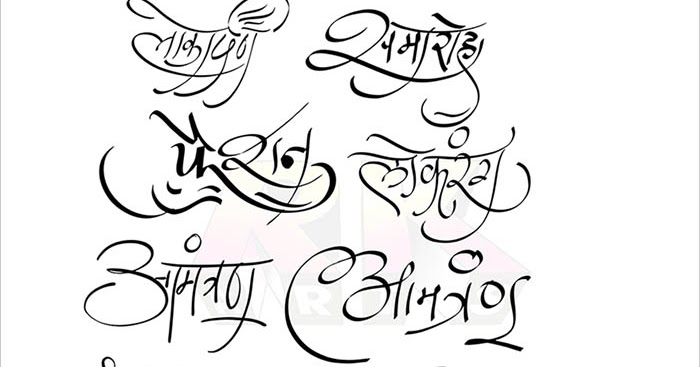 लोकार्पण समारोह
फैशन लोकरंग
आमंत्रण आमत्रंण